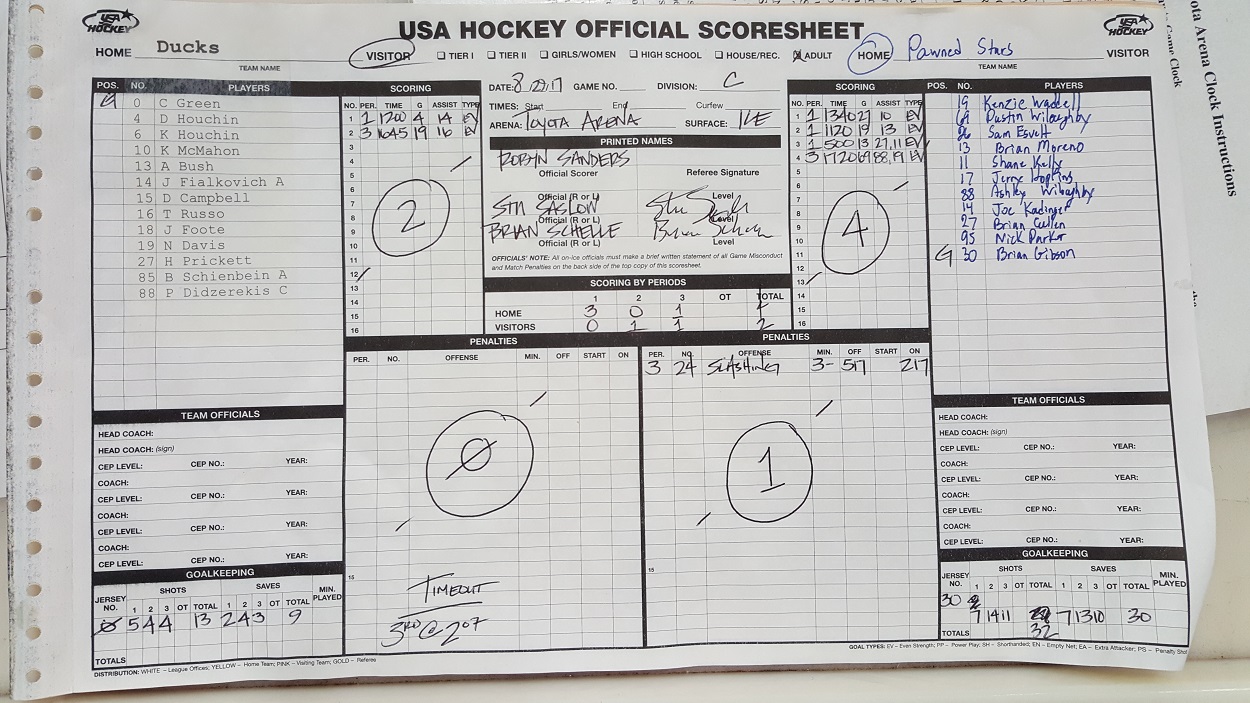 USA HOCKEY
USA HOCKEY OFFICIAL SCORESHEET
USA HOCKEY
HOME Ducks
TEAM NAME
VISITOR TIER I TIER II GIRLS/WOMEN HIGH SCHOOL HOUSE/REC. ADULT HOME
Pawned Stars VISITOR
TEAM NAME
POS. NO. PLAYERS
G 0 C Green
4 D Houchin
6 K Houchin
10 K McMahon
13 A Bush
14 J Fialkovich A
15 D Campbell
16 T Russo
18 J Foote
19 N Davis
27 H Prickett
85 B Schienbein A
88 P Didzerekis C
SCORING
NO. PER. TIME G ASSIST TYPE
1 1 1200 4 14 EV
2 3 1645 19 16 EV
3
4
5
6
7
8
9
10
11
12
13
14
15
16
2
DATE: 8/27/17 GAME NO. DIVISION: C
TIMES: Start End Curfew
ARENA: TOYOTA ARENA SURFACE: ICE
PRINTED NAMES
ROBYN SANDERS
Official Scorer Referee Signature
Official (R or L) Level
STU SASLOW
Official (R or L) Level
BRIAN SCHELLE
Official (R or L) Level
OFFICIALS' NOTE: All on-ice officials must make a brief written statement of all Game Misconduct
and Match Penalties on the back side of the top copy of this scoresheet.
SCORING BY PERIODS
1 2 3 OT TOTAL
HOME 3 0 1 4
VISITORS 0 1 1 2
SCORING
NO. PER. TIME G ASSIST TYPE
1 1 1340 27 10 EV
2 1 1120 19 13 EV
3 1 500 13 27,11 EV
4 3 1720 69 88,19 EV
5
6
7
8
9
10
11
12
13
14
15
16
4
POS. NO. PLAYERS
19 Kenzie Waddell
69 Dustin Wiloughby
96 Sam Esvelt
13 Brian Moreno
11 Shane Kelly
17 Jerry Hopkins
88 Ashley Wiloughby
14 Joe Kadinger
27 Brian Cullen
95 Nick Parker
G 30 Brian Gibson
PENALTIES
PER. NO. OFFENSE MIN. OFF START ON
Ø
15
TIMEOUT
3RD @ 2:07
PENALTIES
PER. NO. OFFENSE MIN. OFF START ON
3 24 SLASHING 3- 517 217
1
15
TEAM OFFICIALS
HEAD COACH:
HEAD COACH: (sign)
CEP LEVEL: CEP NO.: YEAR:
COACH:
CEP LEVEL: CEP NO.: YEAR:
COACH:
CEP LEVEL: CEP NO.: YEAR:
COACH:
CEP LEVEL: CEP NO.: YEAR:
GOALKEEPING
JERSEY NO. SHOTS SAVES MIN. PLAYED
1 2 3 OT TOTAL 1 2 3 OT TOTAL
Ø 5 4 4 13 2 4 3 9
TOTALS
TEAM OFFICIALS
HEAD COACH:
HEAD COACH: (sign)
CEP LEVEL: CEP NO.: YEAR:
COACH:
CEP LEVEL: CEP NO.: YEAR:
COACH:
CEP LEVEL: CEP NO.: YEAR:
COACH:
CEP LEVEL: CEP NO.: YEAR:
GOALKEEPING
JERSEY NO. SHOTS SAVES MIN. PLAYED
1 2 3 OT TOTAL 1 2 3 OT TOTAL
30 7 14 11 7 13 10 30
TOTALS 32
DISTRIBUTION: WHITE – League Offices; YELLOW – Home Team; PINK – Visiting Team; GOLD – Referee
GOAL TYPES: EV – Even Strength; PP – Power Play; SH – Shorthanded; EN – Empty Net; EA – Extra Attacker; PS – Penalty Shot
ota Arena Clock Instructions
Game Clock